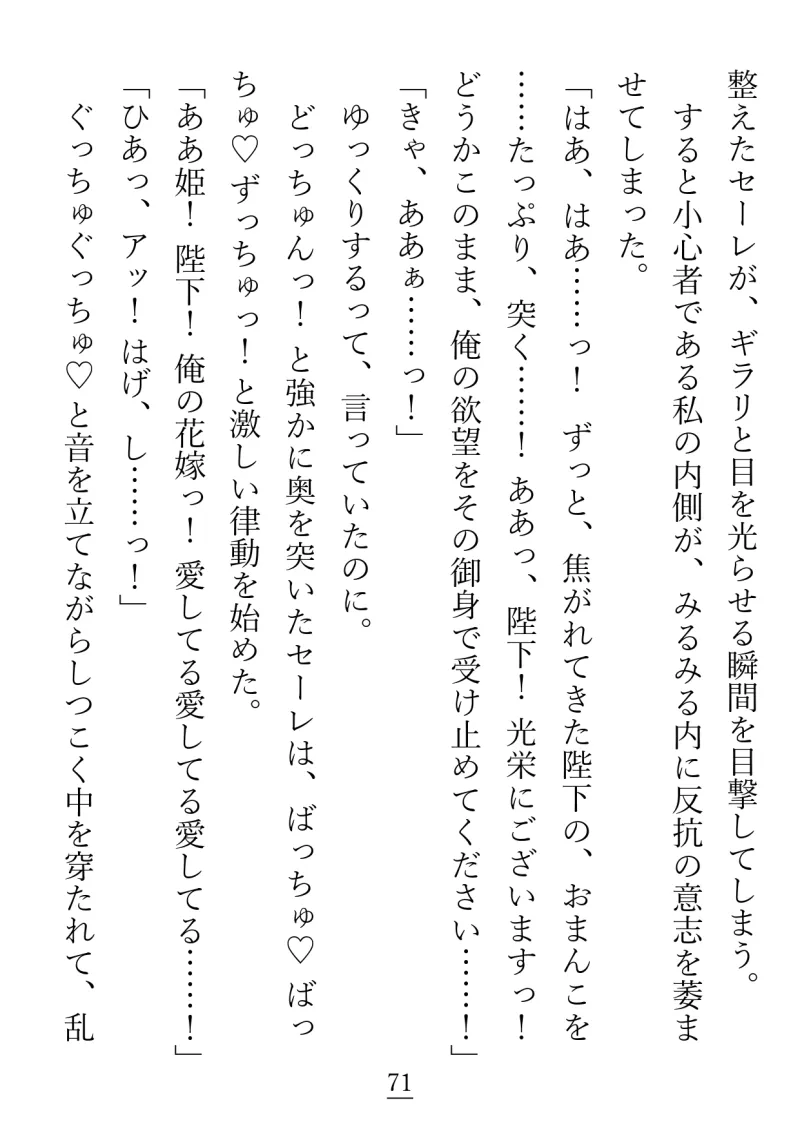 整えたセーレが、ギラリと目を光らせる瞬間を目撃してしまう。
すると小心者である私の内側が、みるみる内に反抗の意志を萎ま
せてしまった。
「はあ、はあ……っ！　ずっと、焦がれてきた陛下の、おまんこを
……たっぷり、突く……！　ああっ、陛下！　光栄にございますっ！
どうかこのまま、俺の欲望をその御身で受け止めてください……！」
「きゃ、ああぁ……っ！」
ゆっくりするって、言っていたのに。
どっちゅんっ！　と強かに奥を突いたセーレは、ばっちゅ♡ ばっ
ちゅ♡ ずっちゅっ！　と激しい律動を始めた。
「ああ姫！　陛下！　俺の花嫁っ！　愛してる愛してる愛してる……！」
「ひあっ、アッ！　はげ、し……っ！」
ぐっちゅぐっちゅ♡ と音を立てながらしつこく中を穿たれて、乱
71